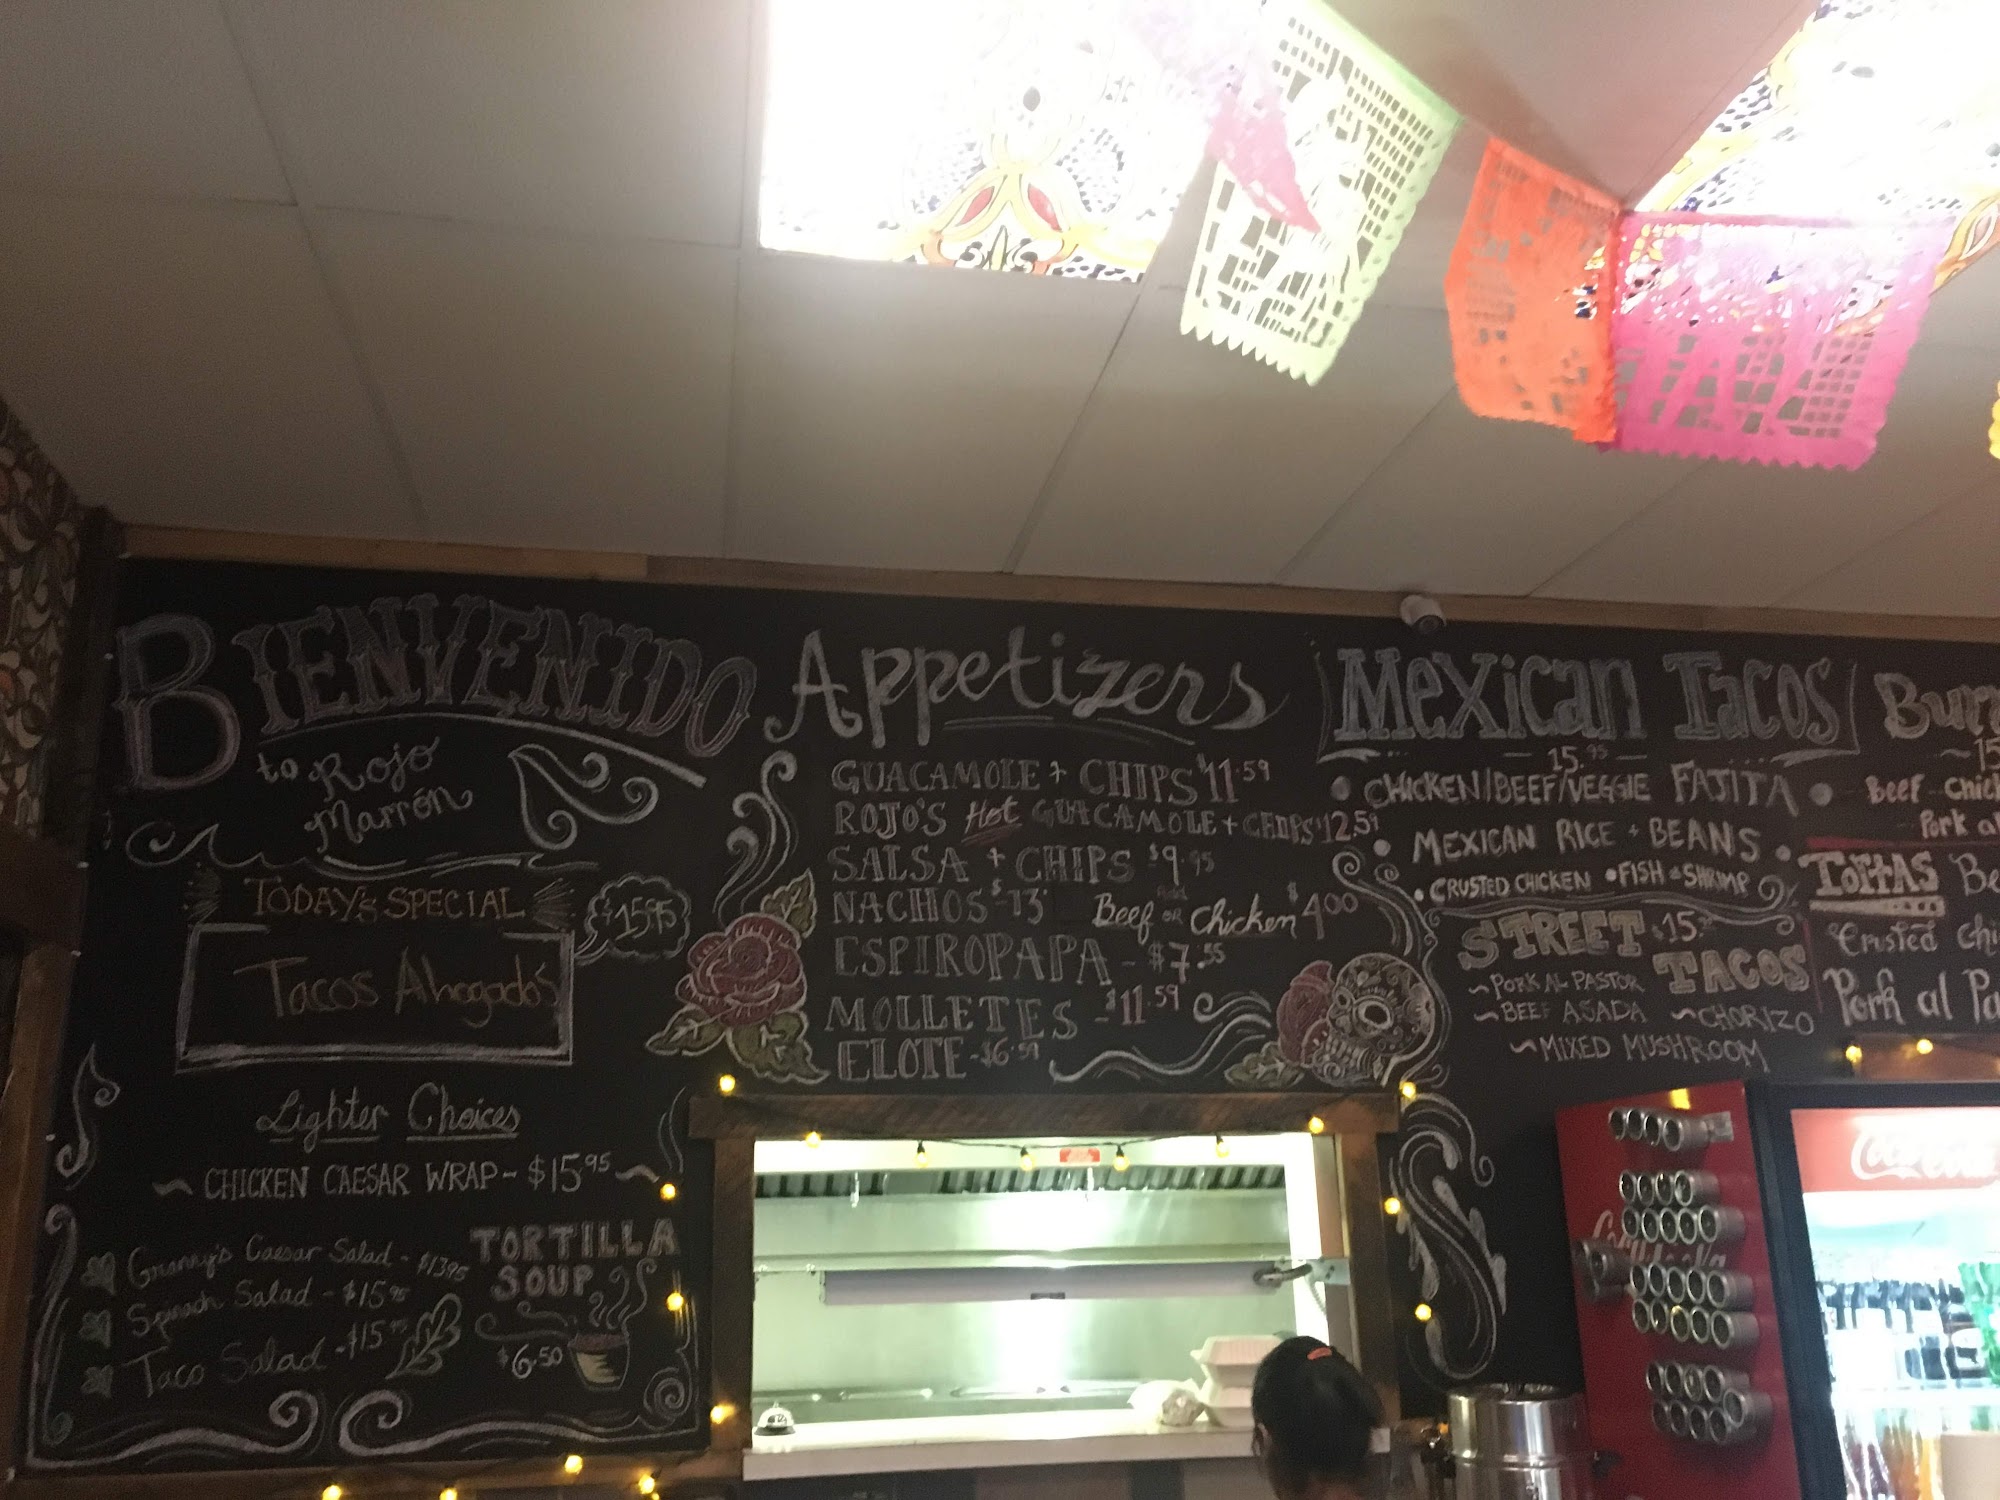 BIENVENIDO
to Rojo
Marrón
TODAY'S SPECIAL
$15.95
Tacos Ahogados
Lighter Choices
~ CHICKEN CAESAR WRAP - $15.95 ~
Granny's Caesar Salad - $13.95
Spinach Salad - $15.95
Taco Salad - $15.95
TORTILLA
SOUP
$6.50
Appetizers
GUACAMOLE + CHIPS $11.59
ROJO'S Hot GUACAMOLE + CHIPS $12.59
SALSA + CHIPS $9.95
NACHOS - $13 Add Beef or Chicken $4.00
ESPIROPAPA - $7.55
MOLLETES - $11.59
ELOTE - $6.59
Mexican Tacos
15.95
• CHICKEN/BEEF/VEGGIE FAJITA •
• MEXICAN RICE + BEANS •
• CRUSTED CHICKEN • FISH • SHRIMP
STREET $15.
TACOS
~ PORK AL PASTOR
~ BEEF ASADA ~ CHORIZO
~ MIXED MUSHROOM
Burr
~ 15
Beef Chick
Pork al
TORTAS Be
Crusted Chi
Pork al Pa
Coca-Cola
Coca-Cola